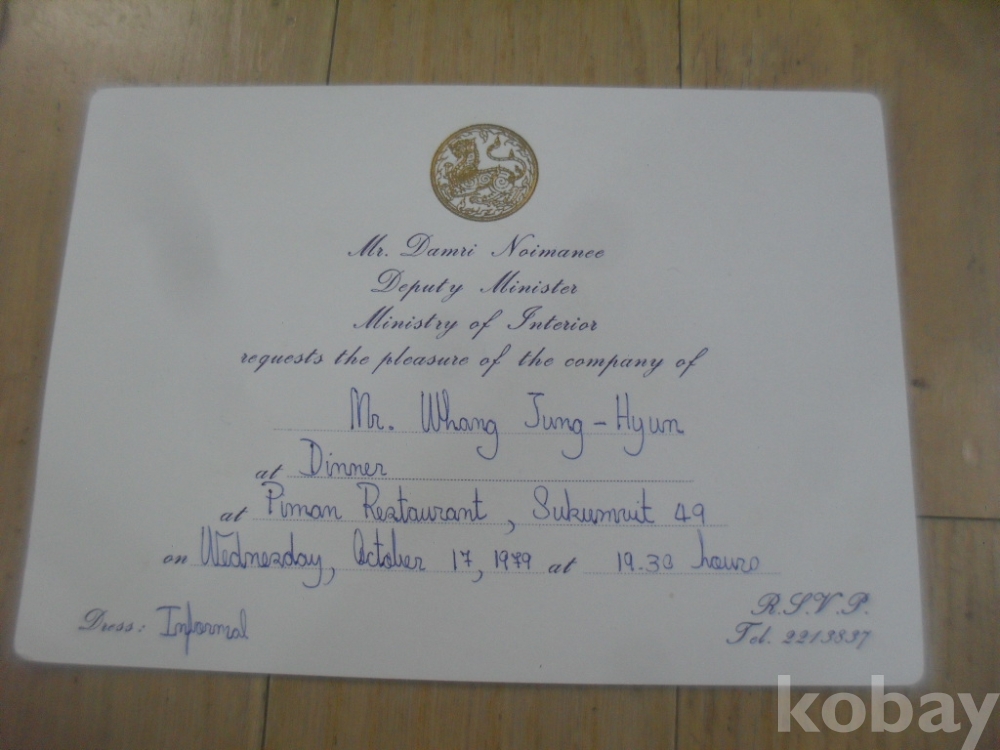 Mr. Damri Noimanee
Deputy Minister
Ministry of Interior
requests the pleasure of the company of
Mr. Whang Jung-Hyun
at Dinner
at Piman Restaurant, Sukumvit 49
on Wednesday, October 17, 1979 at 19.30 hours
Dress: Informal
R.S.V.P.
Tel. 2213837
kobay